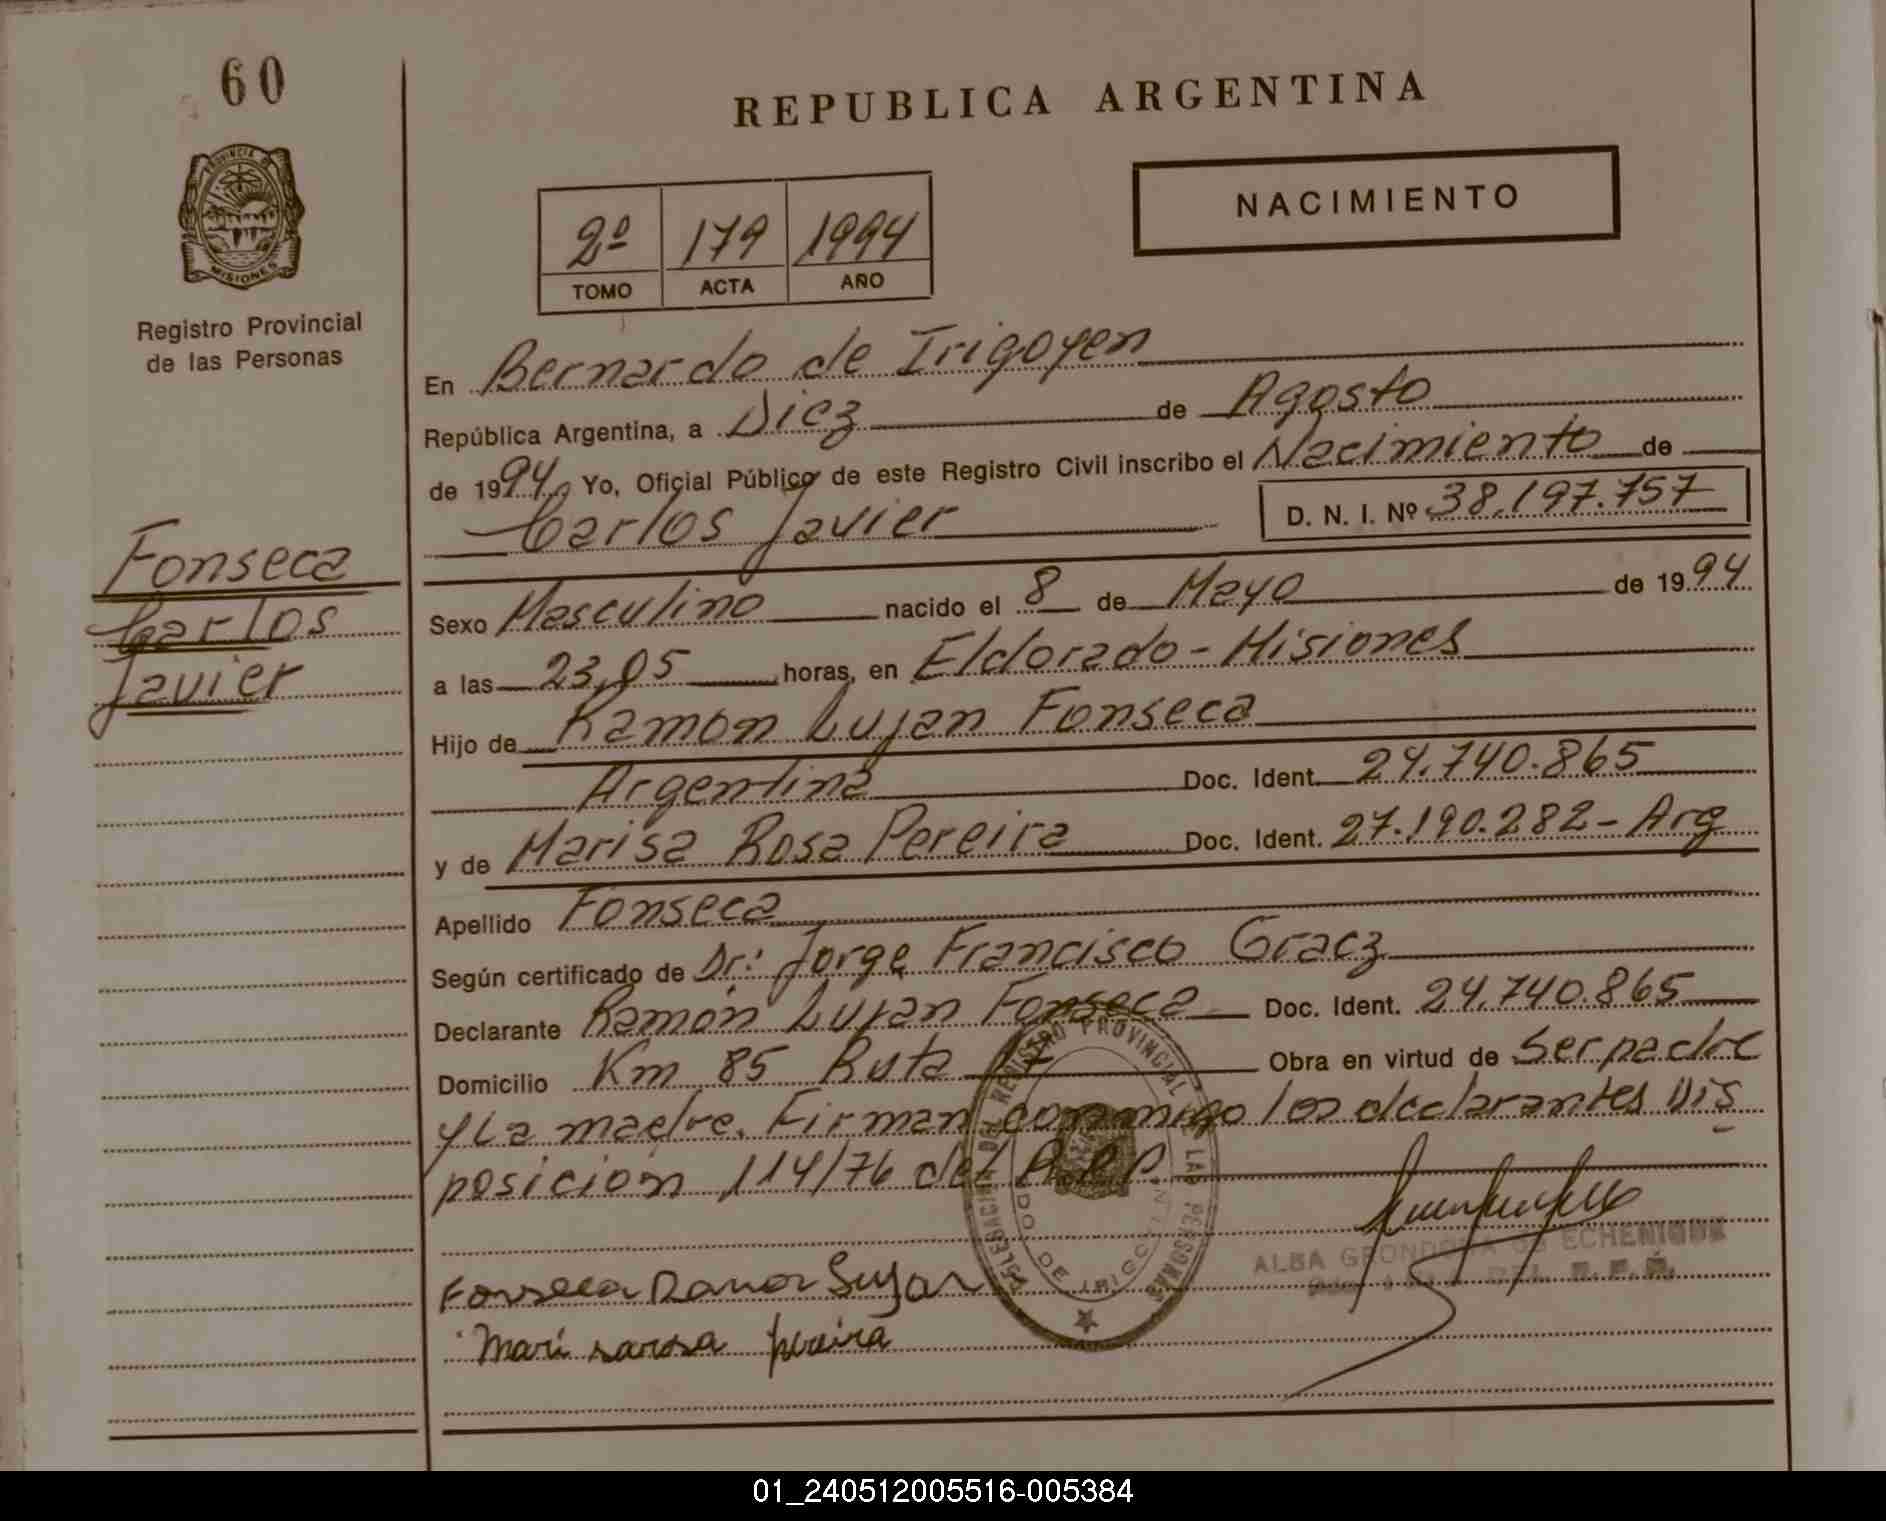 60
REPUBLICA ARGENTINA
PROVINCIA DE
MISIONES
Registro Provincial
de las Personas
NACIMIENTO
2º 179 1994
TOMO ACTA AÑO
En Bernardo de Irigoyen
República Argentina, a Diez de Agosto
de 1994 Yo, Oficial Público de este Registro Civil inscribo el Nacimiento de
Carlos Javier D. N. I. Nº 38.197.757
Fonseca
Carlos
Javier
Sexo Masculino nacido el 8 de Mayo de 1994
a las 23,05 horas, en Eldorado - Misiones
Hijo de Ramon Lujan Fonseca
Argentina Doc. Ident. 24.740.865
y de Marisa Rosa Pereira Doc. Ident. 27.190.282 - Arg
Apellido Fonseca
Según certificado de Dr: Jorge Francisco Gracz
Declarante Ramón Lujan Fonseca Doc. Ident. 24.740.865
Domicilio Km 85 Ruta Obra en virtud de Ser padre
y La madre. Firman conmigo los declarantes Dis
posicion 114/76 del R.P.P.
DELEGACION DEL REGISTRO PROVINCIAL DE LAS PERSONAS
DO DE IRIGOYEN
ALBA GRONDONA DE ECHENIQUE
DEL R.P.P.
Fonseca Ramon Lujan
Mari sa rosa pereira
01_240512005516-005384